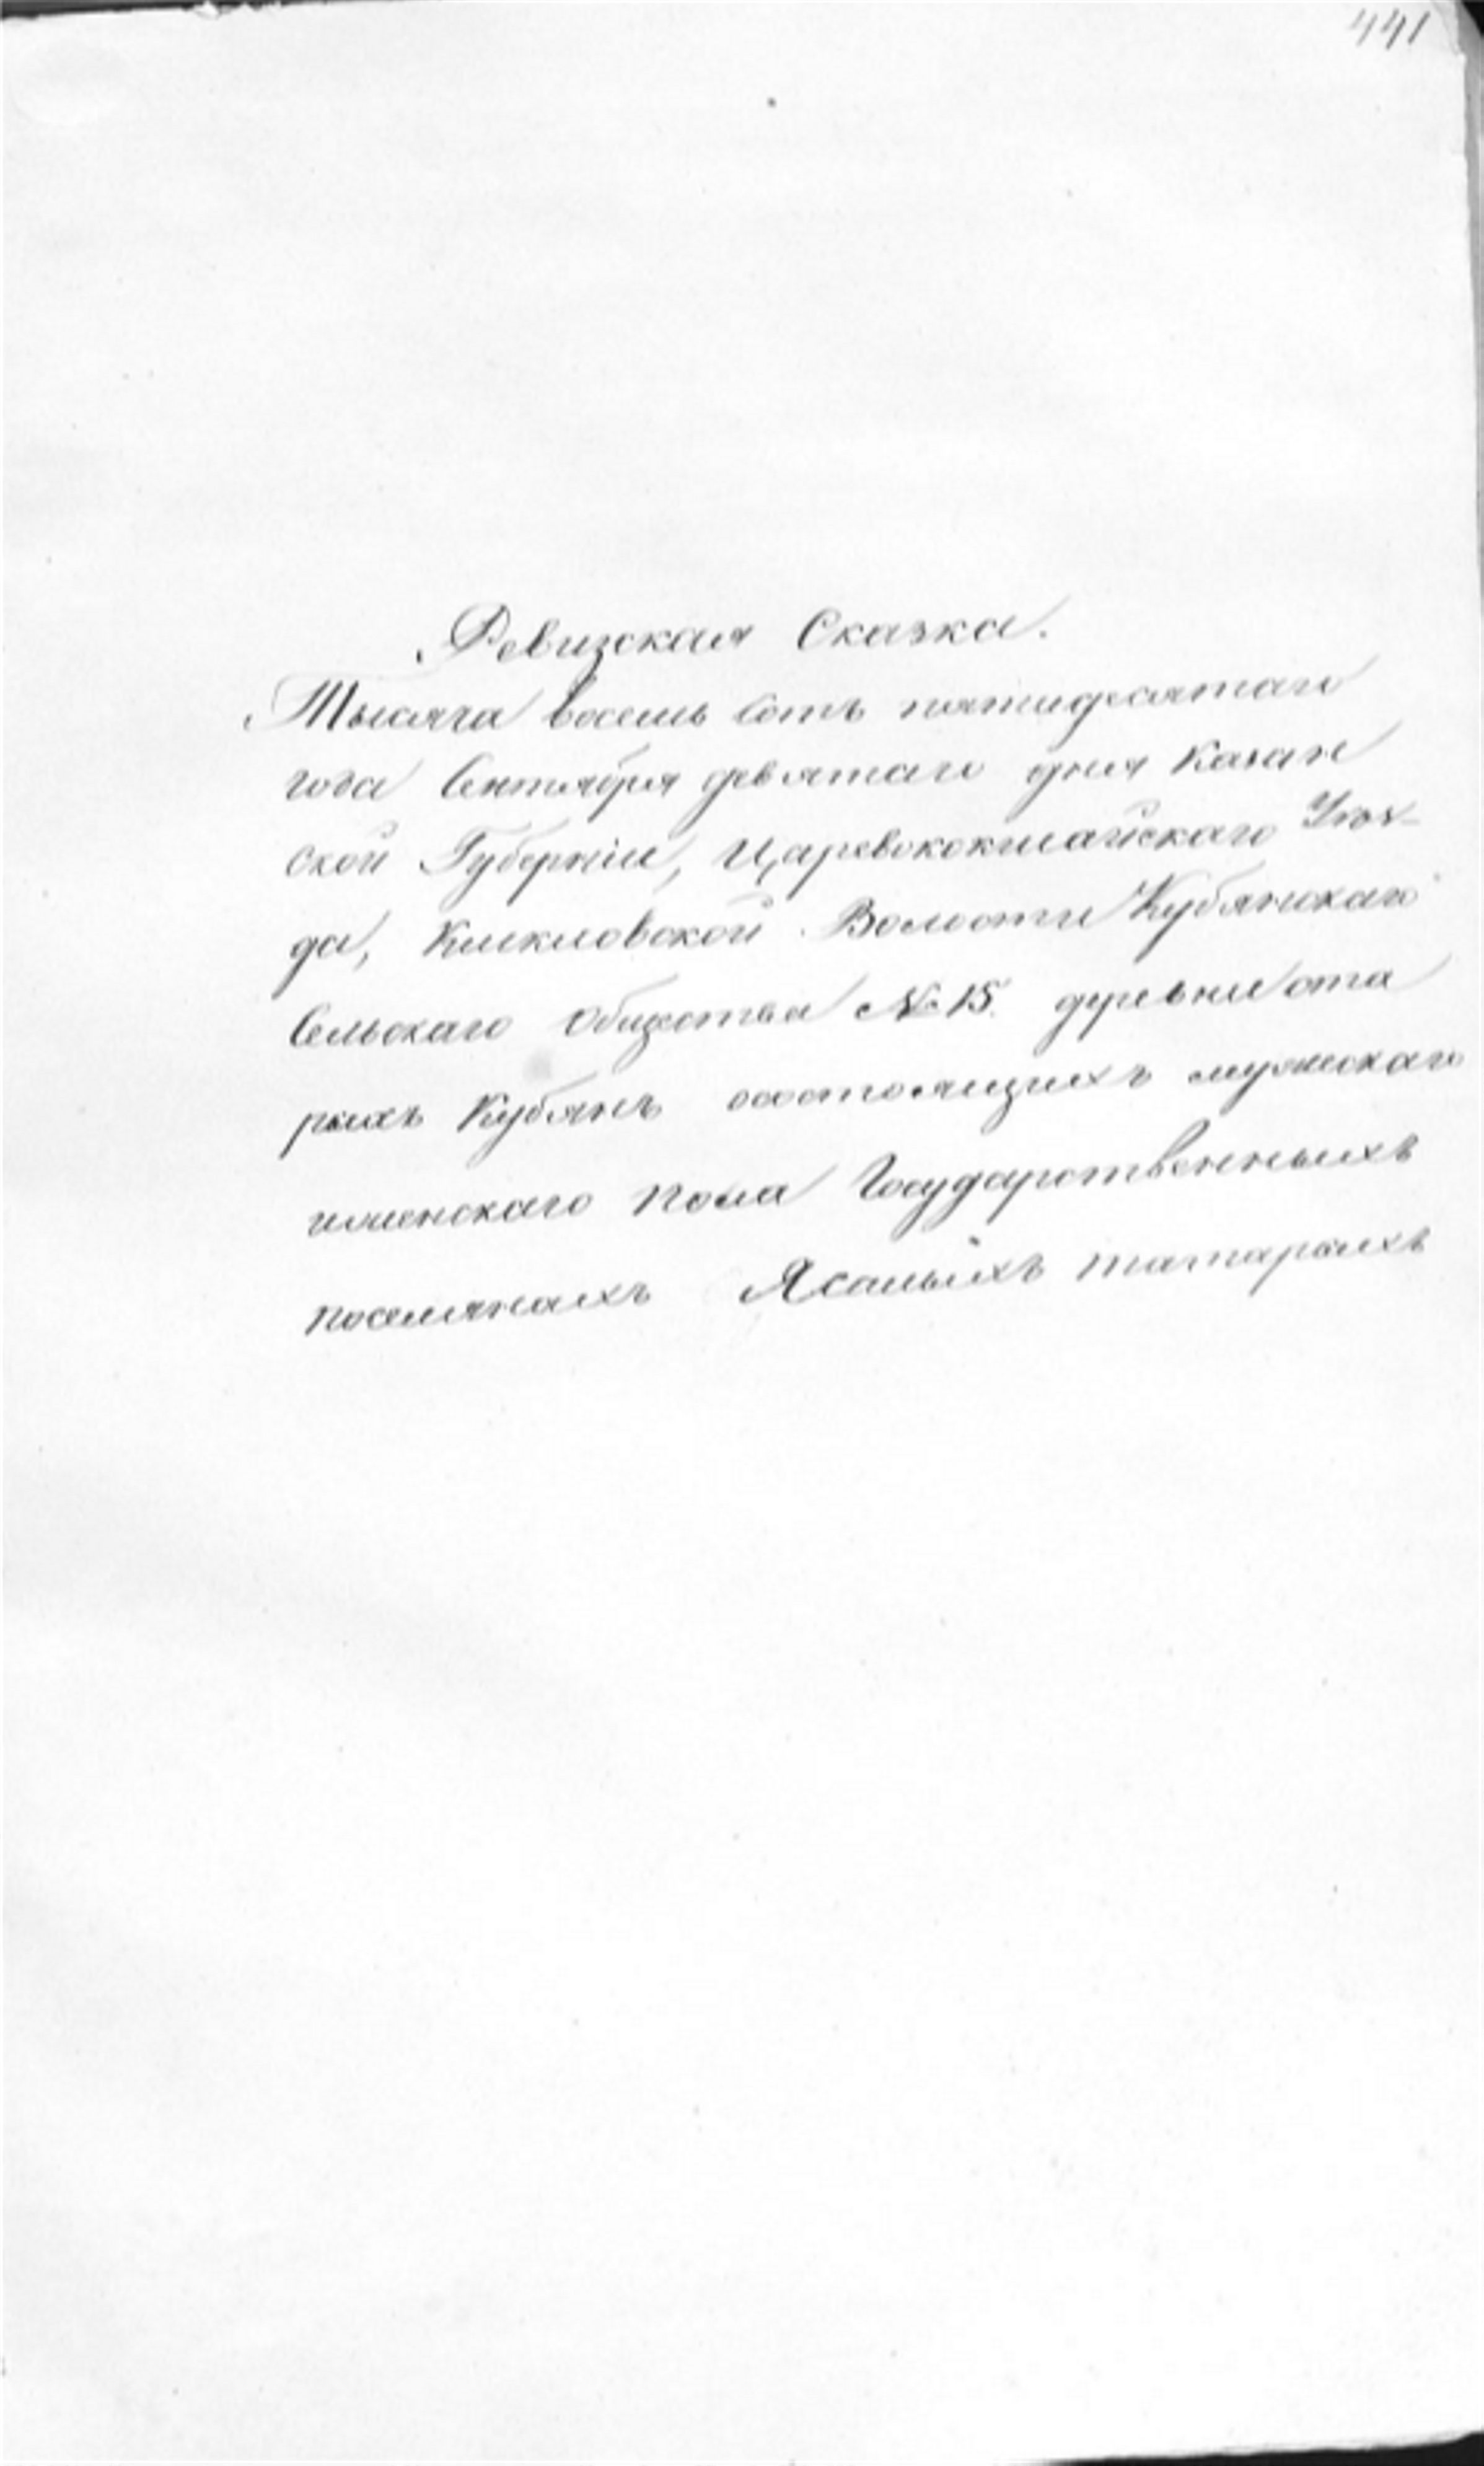 441
Ревизская Сказка.
Тысяча восемь сотъ пятидесятаго
года Сентября девятаго дня Казан
ской Губерніи, Царевококшайскаго Уѣз-
да, Кшкловской Волости Кубянскаго
Сельскаго Общества № 15. деревни ста
рыхъ Кубянъ состоящихъ мужескаго
иженскаго пола Государственныхъ
поселянахъ Ясашныхъ татарахъ